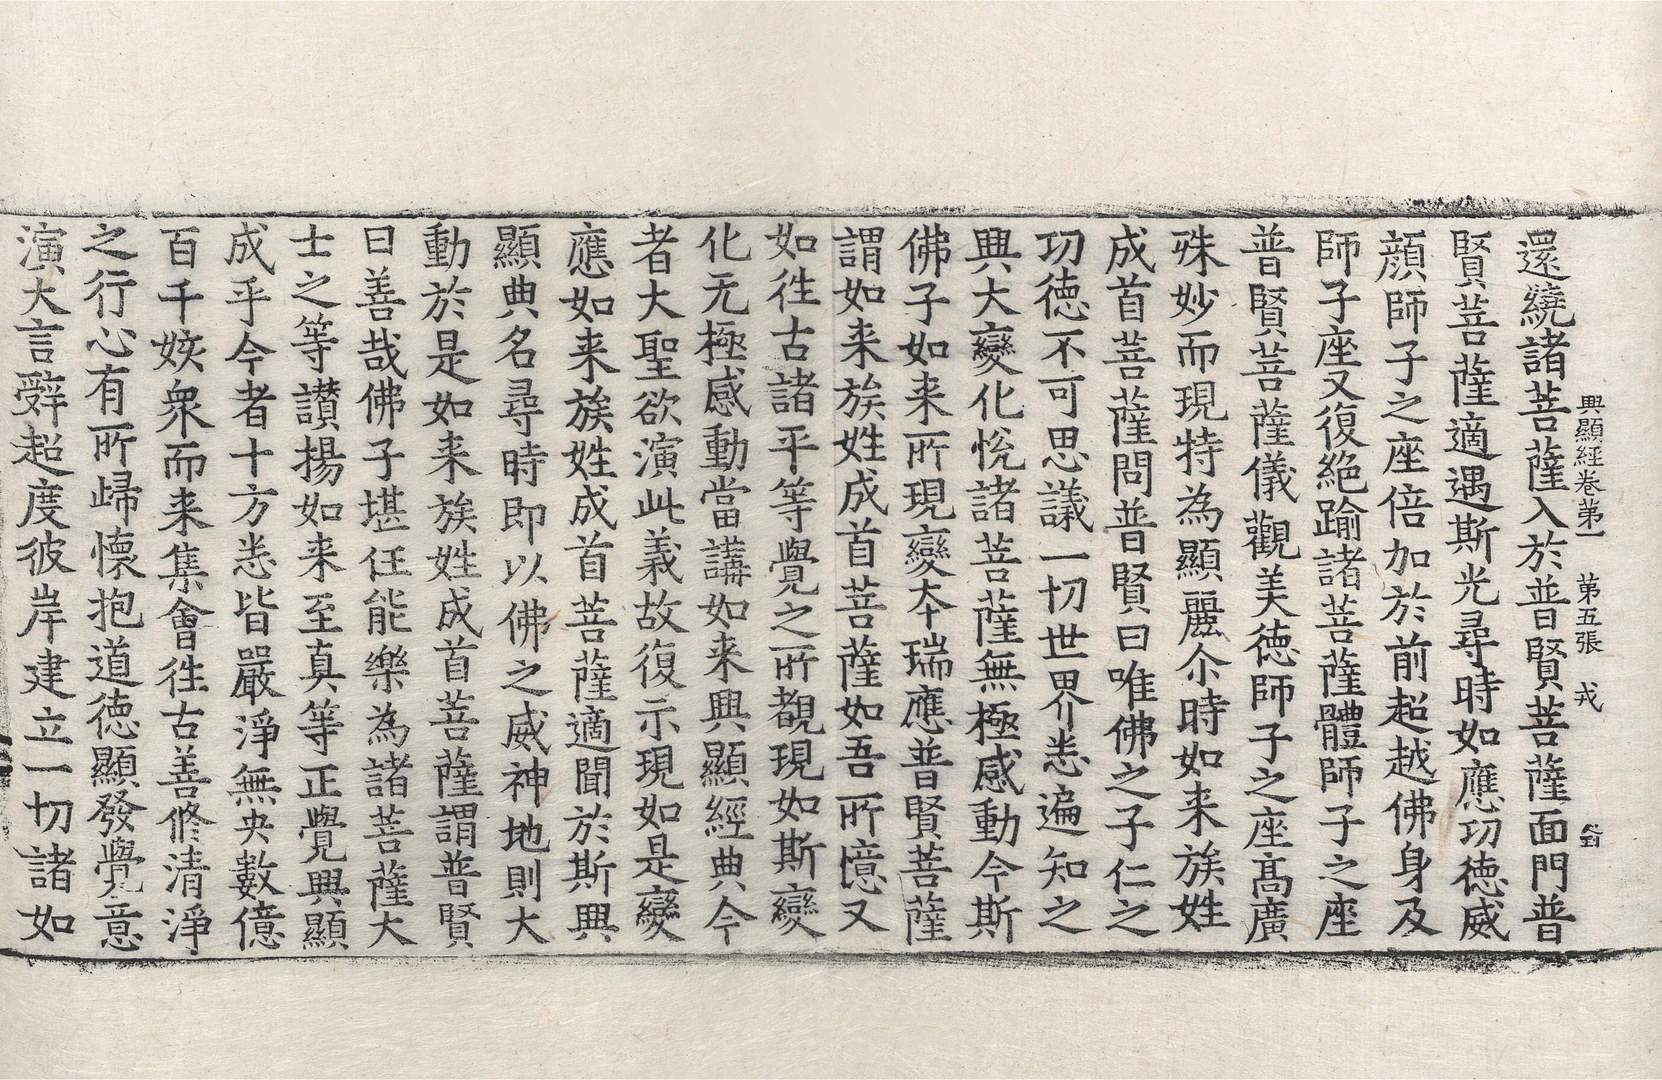 興顯經卷第一 第五張 戎
還繞諸菩薩入於普賢菩薩面門普
賢菩薩適遇斯光尋時如應功德威
顔師子之座倍加於前超越佛身及
師子座又復絶踰諸菩薩體師子之座
普賢菩薩儀觀美德師子之座高廣
殊妙而現特為顯麗尒時如来族姓
成首菩薩問普賢曰唯佛之子仁之
功德不可思議一切世界悉遍知之
興大變化恱諸菩薩無極感動今斯
佛子如来所現變夲瑞應普賢菩薩
謂如来族姓成首菩薩如吾所憶又
如徃古諸平等覺之所覩現如斯變
化无極感動當講如来興顯經典今
者大聖欲演此義故復示現如是變
應如来族姓成首菩薩適聞於斯興
顯典名尋時即以佛之威神地則大
動於是如来族姓成首菩薩謂普賢
曰善哉佛子堪任能樂為諸菩薩大
士之等讃揚如来至真等正覺興顯
成乎今者十方悉皆嚴淨無央數億
百千姟衆而来集會徃古善修清淨
之行心有所歸懷抱道德顯發覺意
演大言辤超度彼岸建立一切諸如